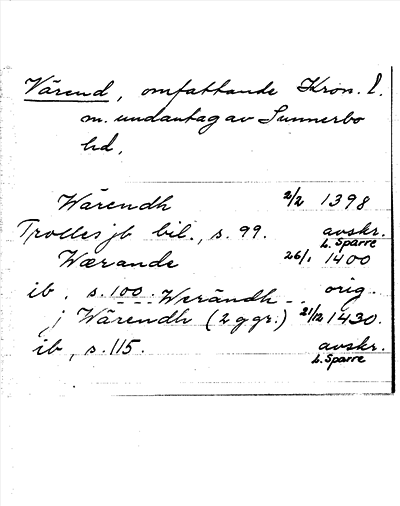 Värend, omfattande Kron. l.
m. undantag av Sunnerbo
hd.
Wärendh 2/2 1398
Trolles jb bil., s. 99. avskr.
L. Sparre
Wærande 26/1 1400
ib. s. 100. Werändh - - orig.
j Wärendh (2 ggr.) 21/12 1430.
ib, s. 115. avskr.
L. Sparre